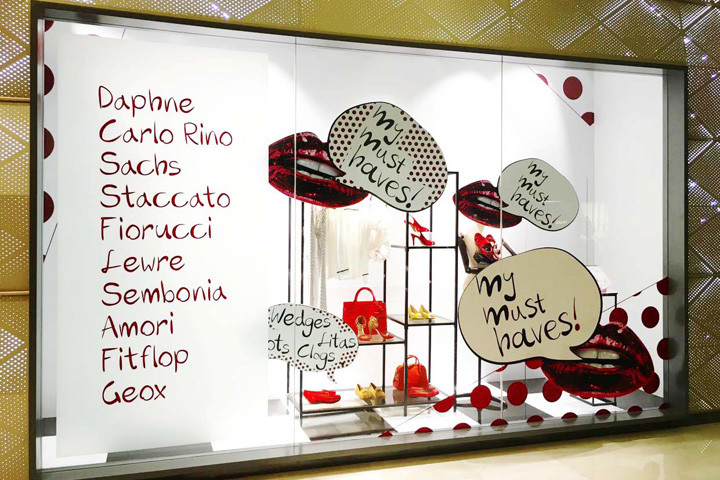 Daphne
Carlo Rino
Sachs
Staccato
Fiorucci
Lewre
Sembonia
Amori
Fitflop
Geox
my
must
haves!
my
must
haves!
my
must
haves!
Wedges
Litas
Clogs